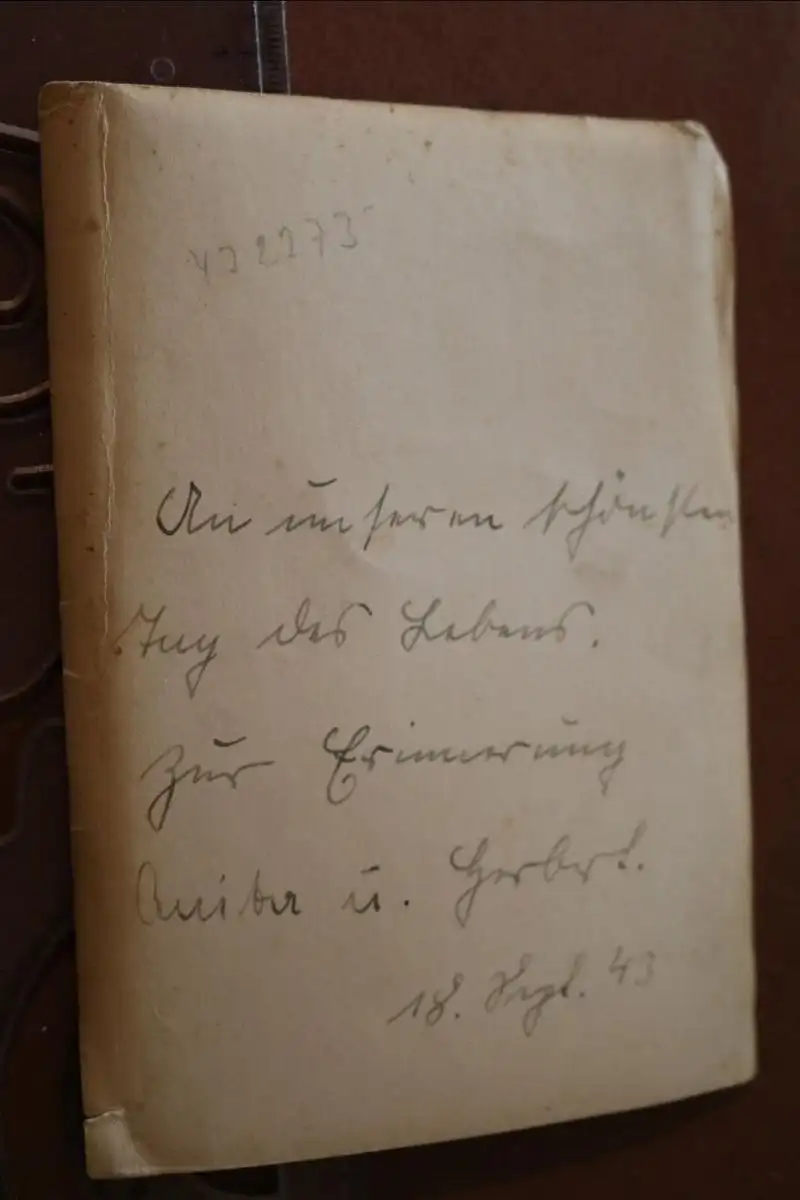 432273
An unseren schönsten
Tag des Lebens.
Zur Erinnerung
Anita u. Herbert.
18. Sept. 43